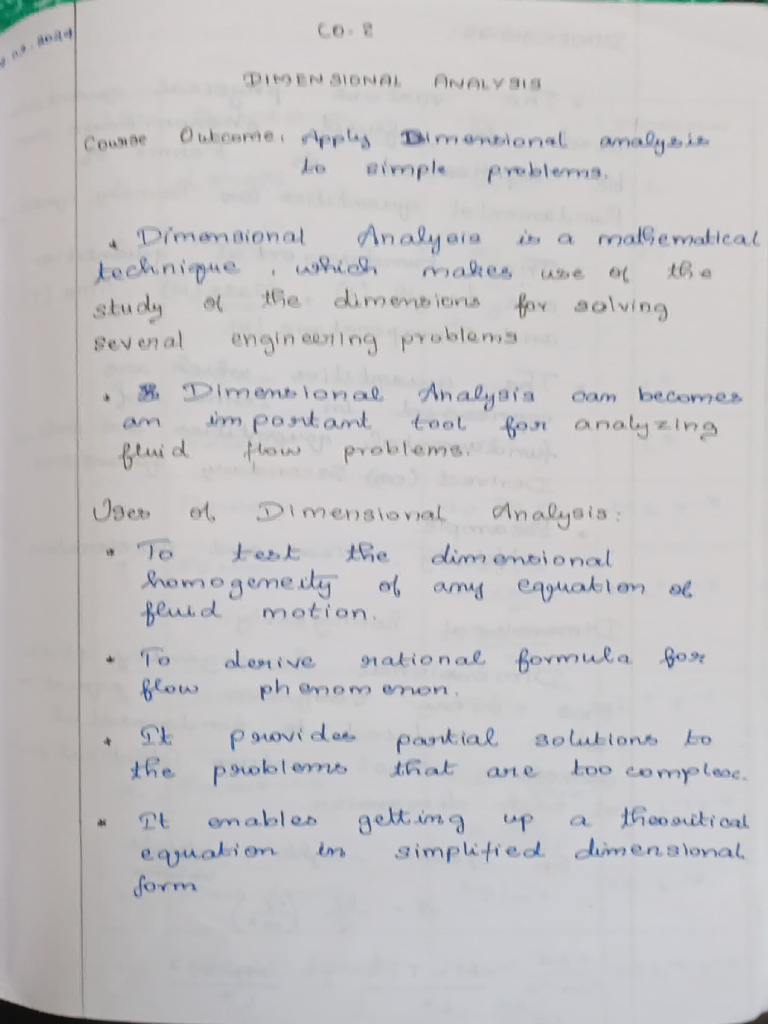 CO-2
DIMENSIONAL ANALYSIS
Course Outcome: Apply Dimensional analysis
to simple problems.
* Dimensional Analysis is a mathematical
technique, which makes use of the
study of the dimensions for solving
several engineering problems
• Dimensional Analysis can becomes
an important tool for analyzing
fluid flow problems.
Uses of Dimensional Analysis:
* To test the dimensional
homogeneity of any equation of
fluid motion.
* To derive rational formula for
flow phenomenon.
* It provides partial solutions to
the problems that are too complex.
* It enables getting up a theoritical
equation in simplified dimensional
form